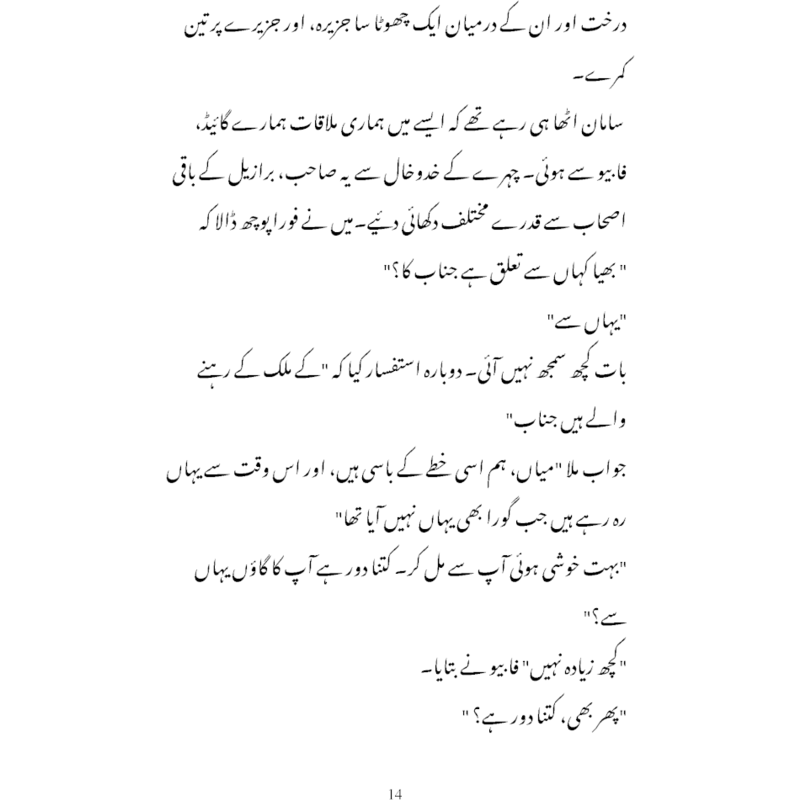 درخت اور ان کے درمیان ایک چھوٹا سا جزیرہ، اور جزیرے پر تین
کمرے۔
سامان اٹھا ہی رہے تھے کہ ایسے میں ہماری ملاقات ہمارے گائیڈ،
فابیو سے ہوئی۔ چہرے کے خدوخال سے یہ صاحب، برازیل کے باقی
اصحاب سے قدرے مختلف دکھائی دئیے۔میں نے فورا پوچھ ڈالا کہ
" بھیا کہاں سے تعلق ہے جناب کا؟"
"یہاں سے"
بات کچھ سمجھ نہیں آئی۔ دوبارہ استفسار کیا کہ "کے ملک کے رہنے
والے ہیں جناب"
جواب ملا "میاں، ہم اسی خطے کے باسی ہیں، اور اس وقت سے یہاں
رہ رہے ہیں جب گورا بھی یہاں نہیں آیا تھا"
"بہت خوشی ہوئی آپ سے مل کر۔ کتنا دور ہے آپ کا گاؤں یہاں
سے؟"
"کچھ زیادہ نہیں" فابیو نے بتایا۔
"پھر بھی، کتنا دور ہے؟ "
14